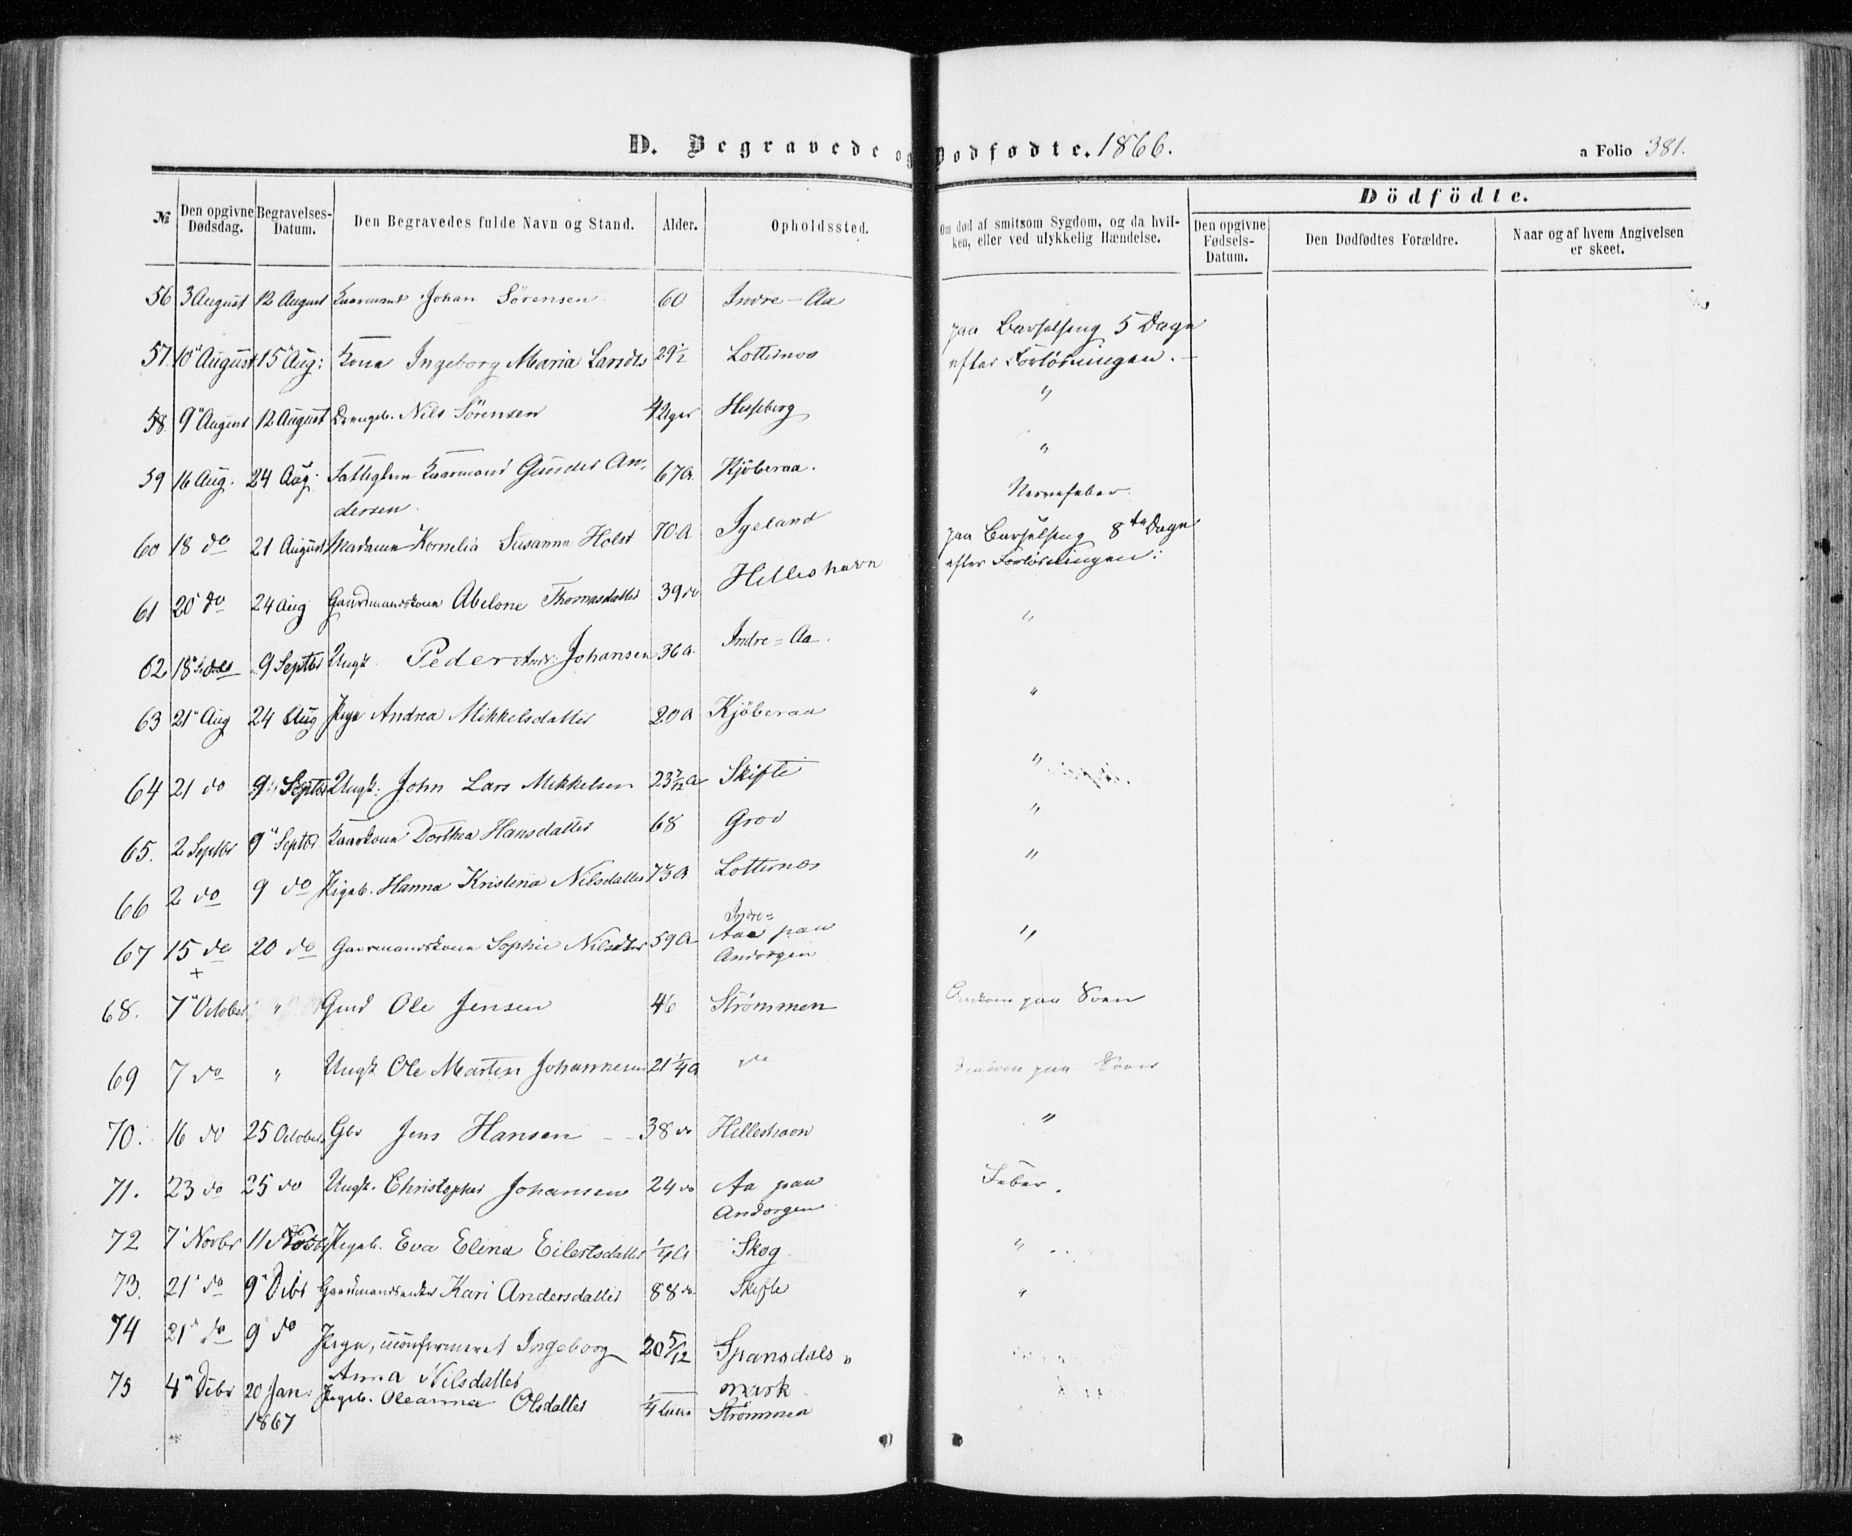 D. Begravede og Dødfødte. 1866. a Folio 381.
Dödfödte.
№ Den opgivne Dødsdag. Begravelses-Datum. Den Begravedes fulde Navn og Stand. Alder. Opholdssted. Om død af smitsom Sygdom, og da hvil-ken, eller ved ulykkelig Hændelse. Den opgivne Fødsels-Datum. Den Dødfødtes Forældre. Naar og af hvem Angivelsen er skeet.
56 3 August 12 August Kaarmand Johan Sörensen 60 Indre-Aa
paa Barselseng 5 Dage
57. 10" August 15" Aug: Kone Ingeborg Maria Larsdtr 29½ Lotternæs efter Forløsningen.
58. 9" August 12 August Drengeb. Nils Sörensen Hesseberg "
59 16 Aug. 24 Aug. Fattiglem Kaarmand Gunder An- 67 A. Kjöberaa. "
dersen. Nervefeber.
60 18 do 21 August Madame Kornelia Susanna Holst 70 A Igeland paa Barselseng 8de Dage
efter Forløsningen:
61 20" do 24 Aug Gaardmandskone Abelone Thomasdatter 39 do Helleshavn
62 18" 9 Septbr Ungk. Peder Andr: Johansen 36 a. Indre=Aa. "
63 21" Aug 24 Aug Pige Andrea Mikkelsdatter 20 A Kjöberaa "
64 21 do 9 Septbr Ungk: John Lars Mikkelsen 23 7/12 A Skifte "
65. 2 Septbr 9" Septbr Kaarkone Dorthea Hansdatter 68 Grov "
66 2 do 9 do Pigeb. Hanna Kristena Nilsdatter 73 A. Lotternæs "
67 15 do 20 do Gaarmandskone Sophie Nilsdtter 59 A Indre=
Aa paa "
Andorgen
+
68. 7" October " Gmd Ole Jensen 46 Strømmen Omkom paa Söen
69 7 do " Ungk Ole Marten Johannesen 21 ¼ A do Omkom paa Söen
70. 16 do 25 October. Gbr Jens Hansen 38 do Helleshavn "
71. 23 do 25 do Ungk. Christopher Johansen 24 do Aa paa Feber.
Andorgen
72 7' Novbr 11 Novbr Pigeb. Eva Elina Eilertsdatter ¼ A Skog. "
73. 21' do 9" Dcbr Gaardmandsenke Kari Andersdatter 88 do Skifte "
74 21" do 9" do Pige, uconfirmeret Ingeborg 20 5/12 Spansdals
Anna Nilsdatter mark
75 4" Dcbr 20 Jan. Pigeb. Oleanna Olsdatter ¼ Strømmen
1867